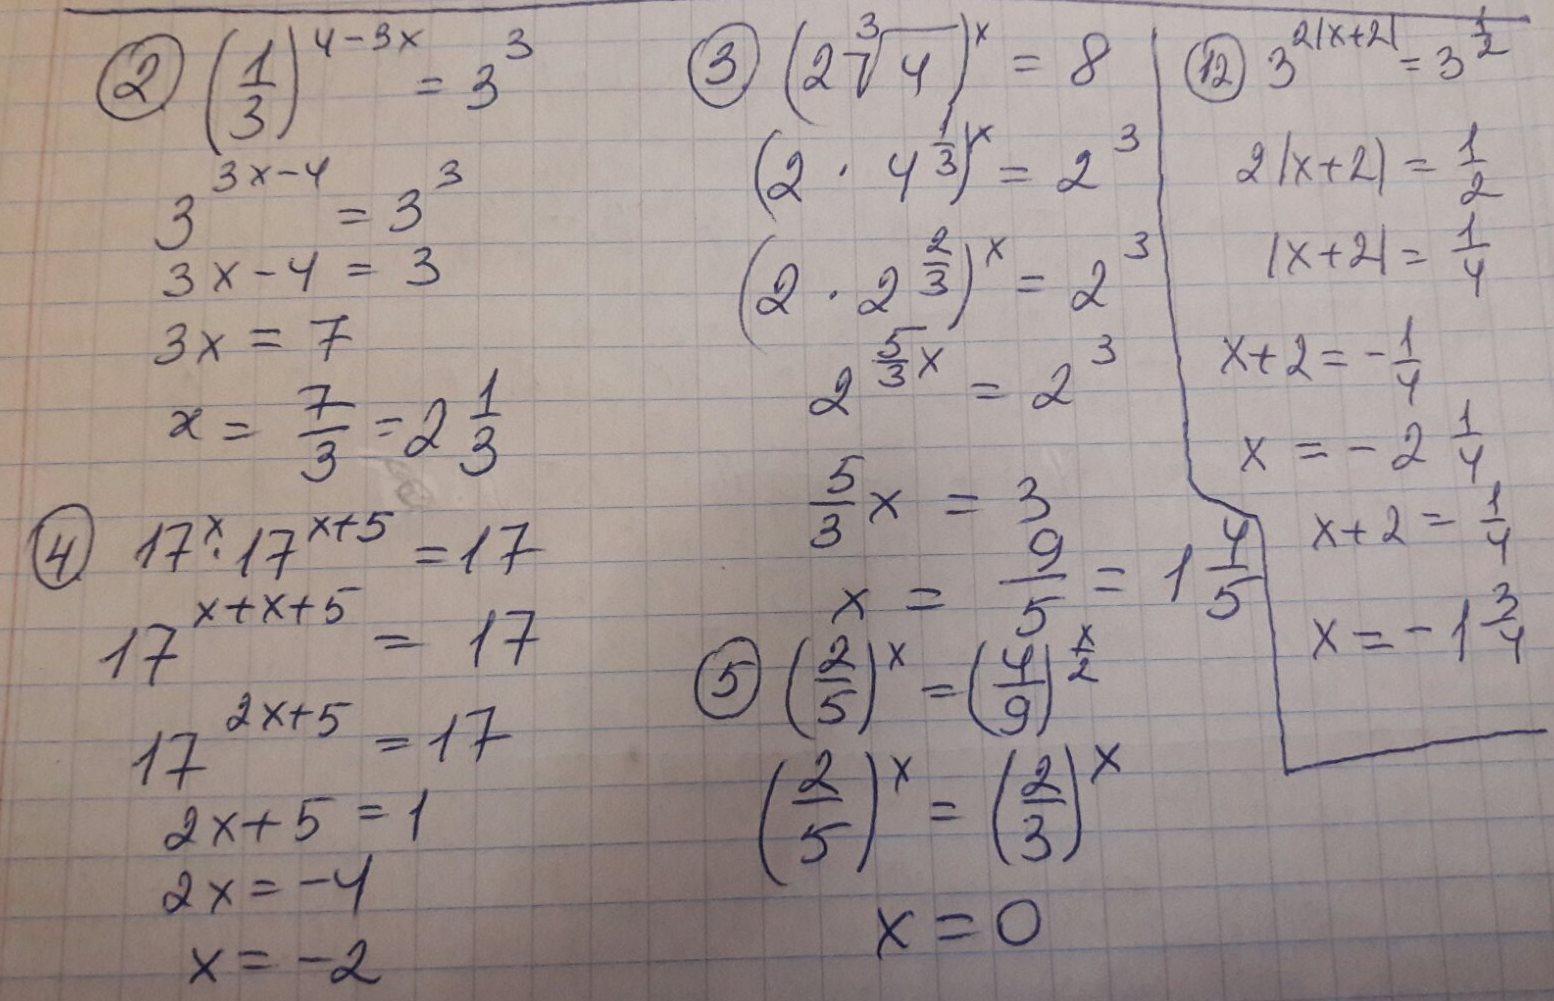 ② (1/3)^(4-3x) = 3^3
3^(3x-4) = 3^3
3x-4 = 3
3x = 7
x = 7/3 = 2 1/3
④ 17^x · 17^(x+5) = 17
17^(x+x+5) = 17
17^(2x+5) = 17
2x+5 = 1
2x = -4
x = -2
③ (2∛4)^x = 8
(2 · 4^(1/3))^x = 2^3
(2 · 2^(2/3))^x = 2^3
2^(5/3 x) = 2^3
5/3 x = 3
x = 9/5 = 1 4/5
⑤ (2/5)^x = (4/9)^(x/2)
(2/5)^x = (2/3)^x
x = 0
⑫ 3^(2|x+2|) = 3^(1/2)
2|x+2| = 1/2
|x+2| = 1/4
x+2 = -1/4
x = -2 1/4
x+2 = 1/4
x = -1 3/4